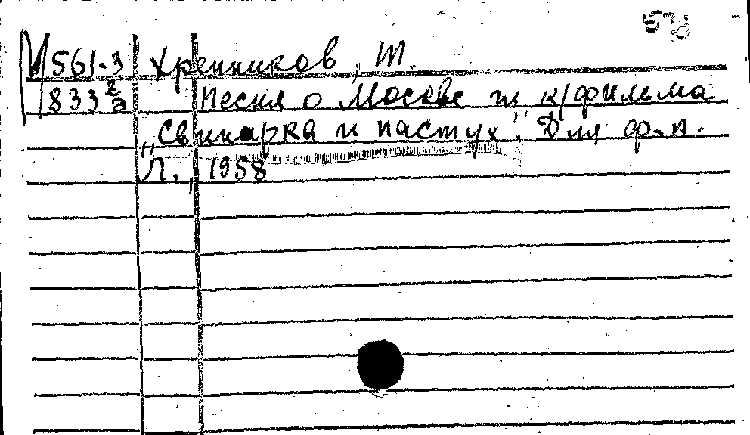 М561-3 Хренников, Т.
833 2/э Песня о Москве из к/фильма
„Свинарка и пастух". Для ф.-п.
Л., 1958